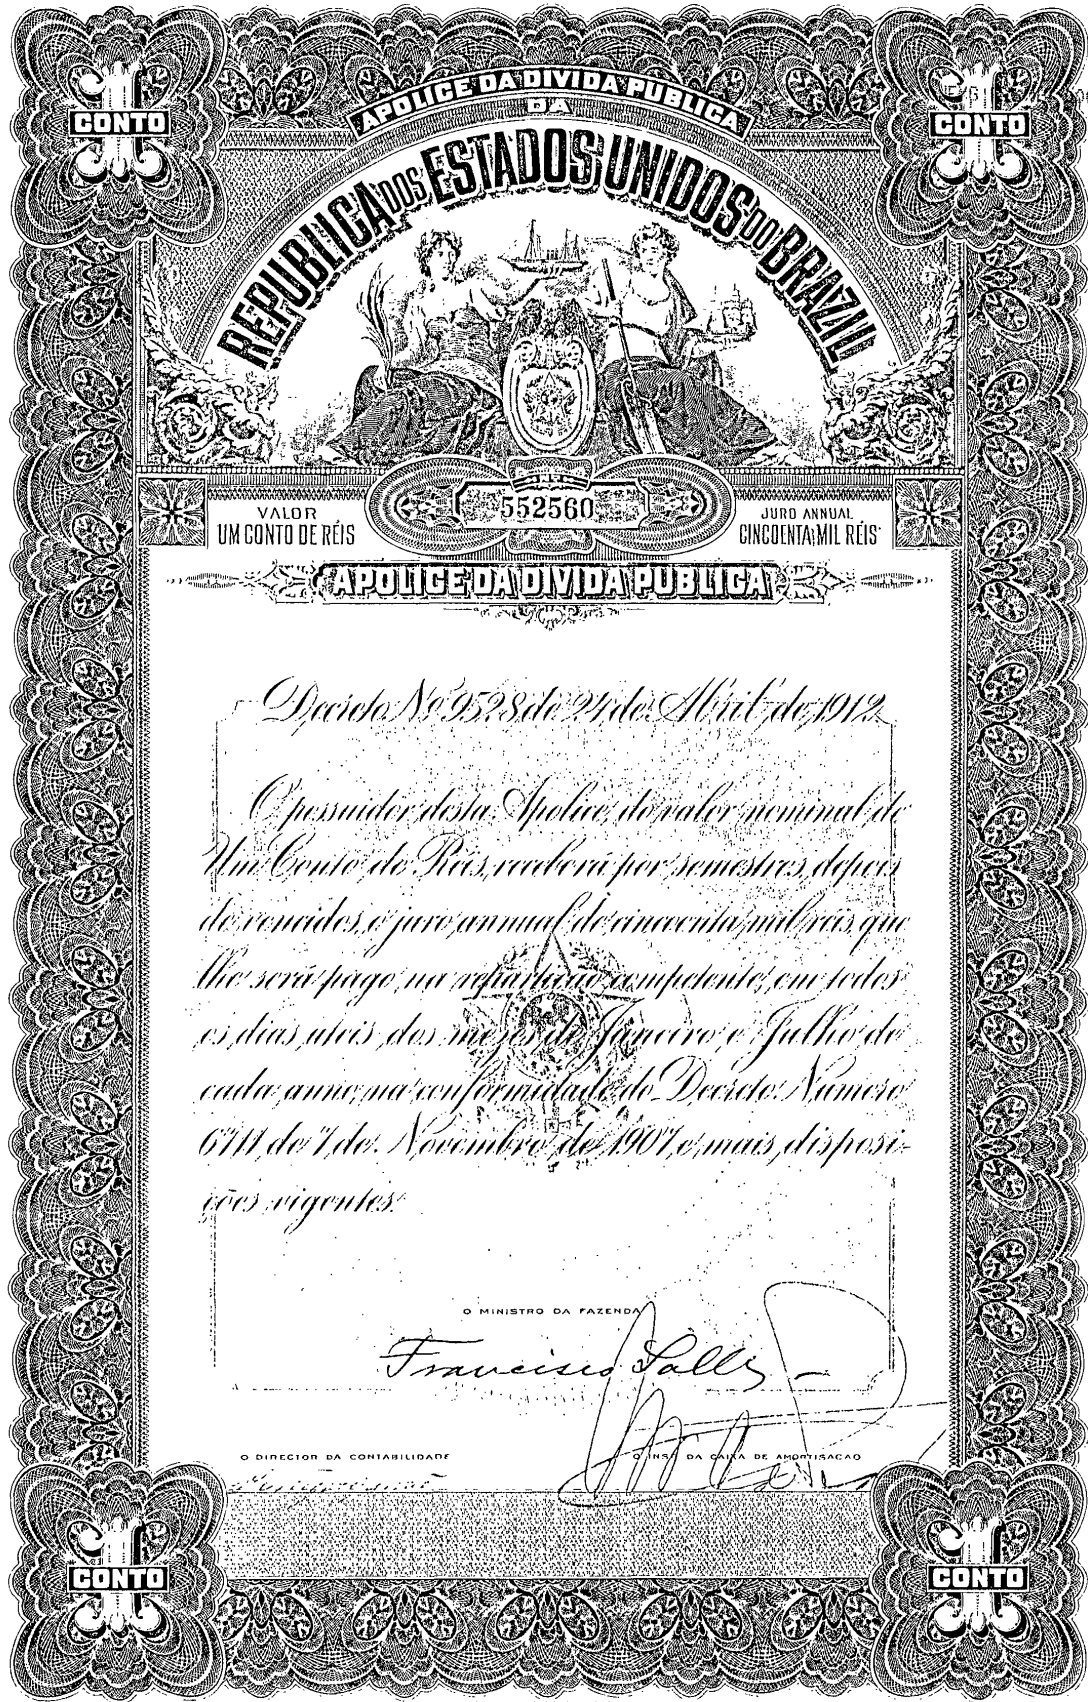 CONTO
CONTO
APOLICE DA DIVIDA PUBLICA
DA
REPUBLICA DOS ESTADOS UNIDOS DO BRAZIL
Nº
552560
VALOR
UM CONTO DE RÉIS
JURO ANNUAL
CINCOENTA MIL RÉIS
APOLICE DA DIVIDA PUBLICA
Decreto Nº 9528 de 24 de Abril de 1912
O possuidor desta Apolice, do valor nominal de
Um Conto de Réis, receberá por semestres, depois
de vencidos, o juro annual de cincoenta mil réis, que
lhe será pago, na repartição competente, em todos
os dias uteis dos mezes de Janeiro e Julho de
cada anno, na conformidade do Decreto Numero
6711, de 7 de Novembro de 1907 e mais disposi-
ções vigentes.
O MINISTRO DA FAZENDA
Francisco Salles
O DIRECTOR DA CONTABILIDADE
O INSP. DA CAIXA DE AMORTISAÇÃO
CONTO
CONTO